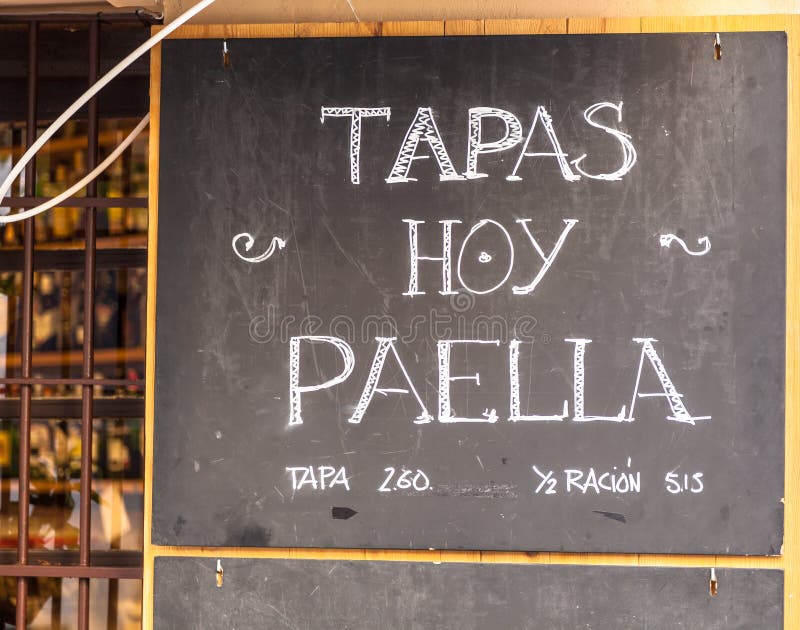 TAPAS
HOY
PAELLA
TAPA 2.60. ½ RACIÓN 5.15
dreamstime